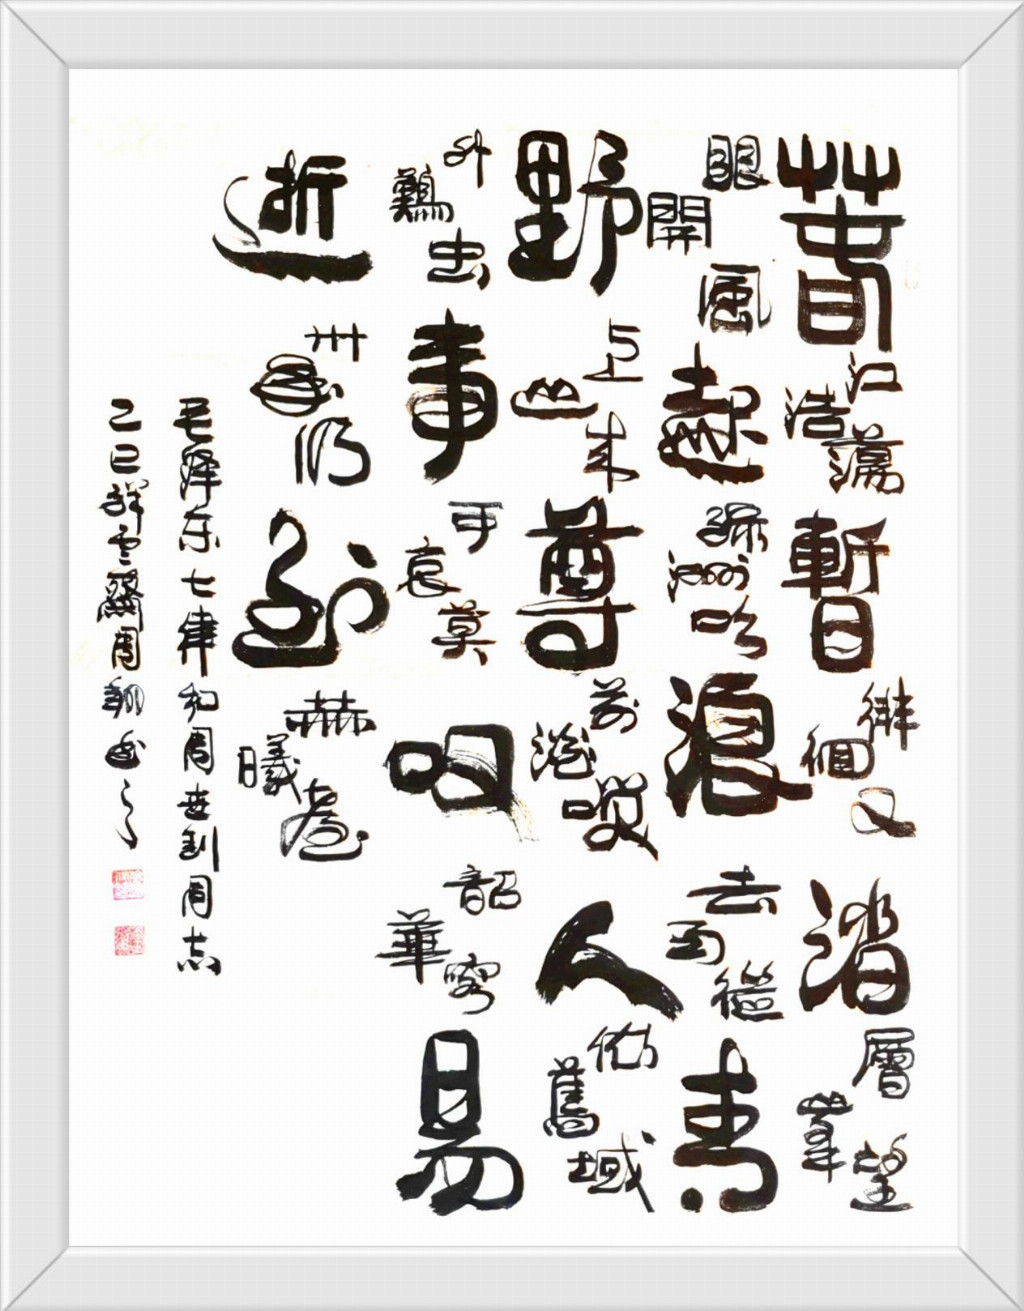 春江浩蕩暫徘徊又踏層峯望
眼開風起緑洲吹浪去雨從青
野上山来尊前談笑人依舊域
外鷄虫事可哀莫叹韶華容易
逝卅年仍到赫曦臺
毛澤东七律和周世釗同志
乙巳祥雲齋周翔書之